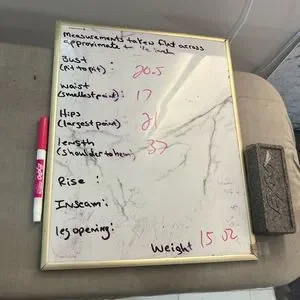 Measurements taken flat across
approximate +- 1/2 inch
Bust :
(pit to pit) 20.5
Waist
(smallest point): 17
Hips
(largest point) 21
length
(shoulder to hem) 37
Rise :
Inseam:
leg opening:
Weight 15 oz
EXPO